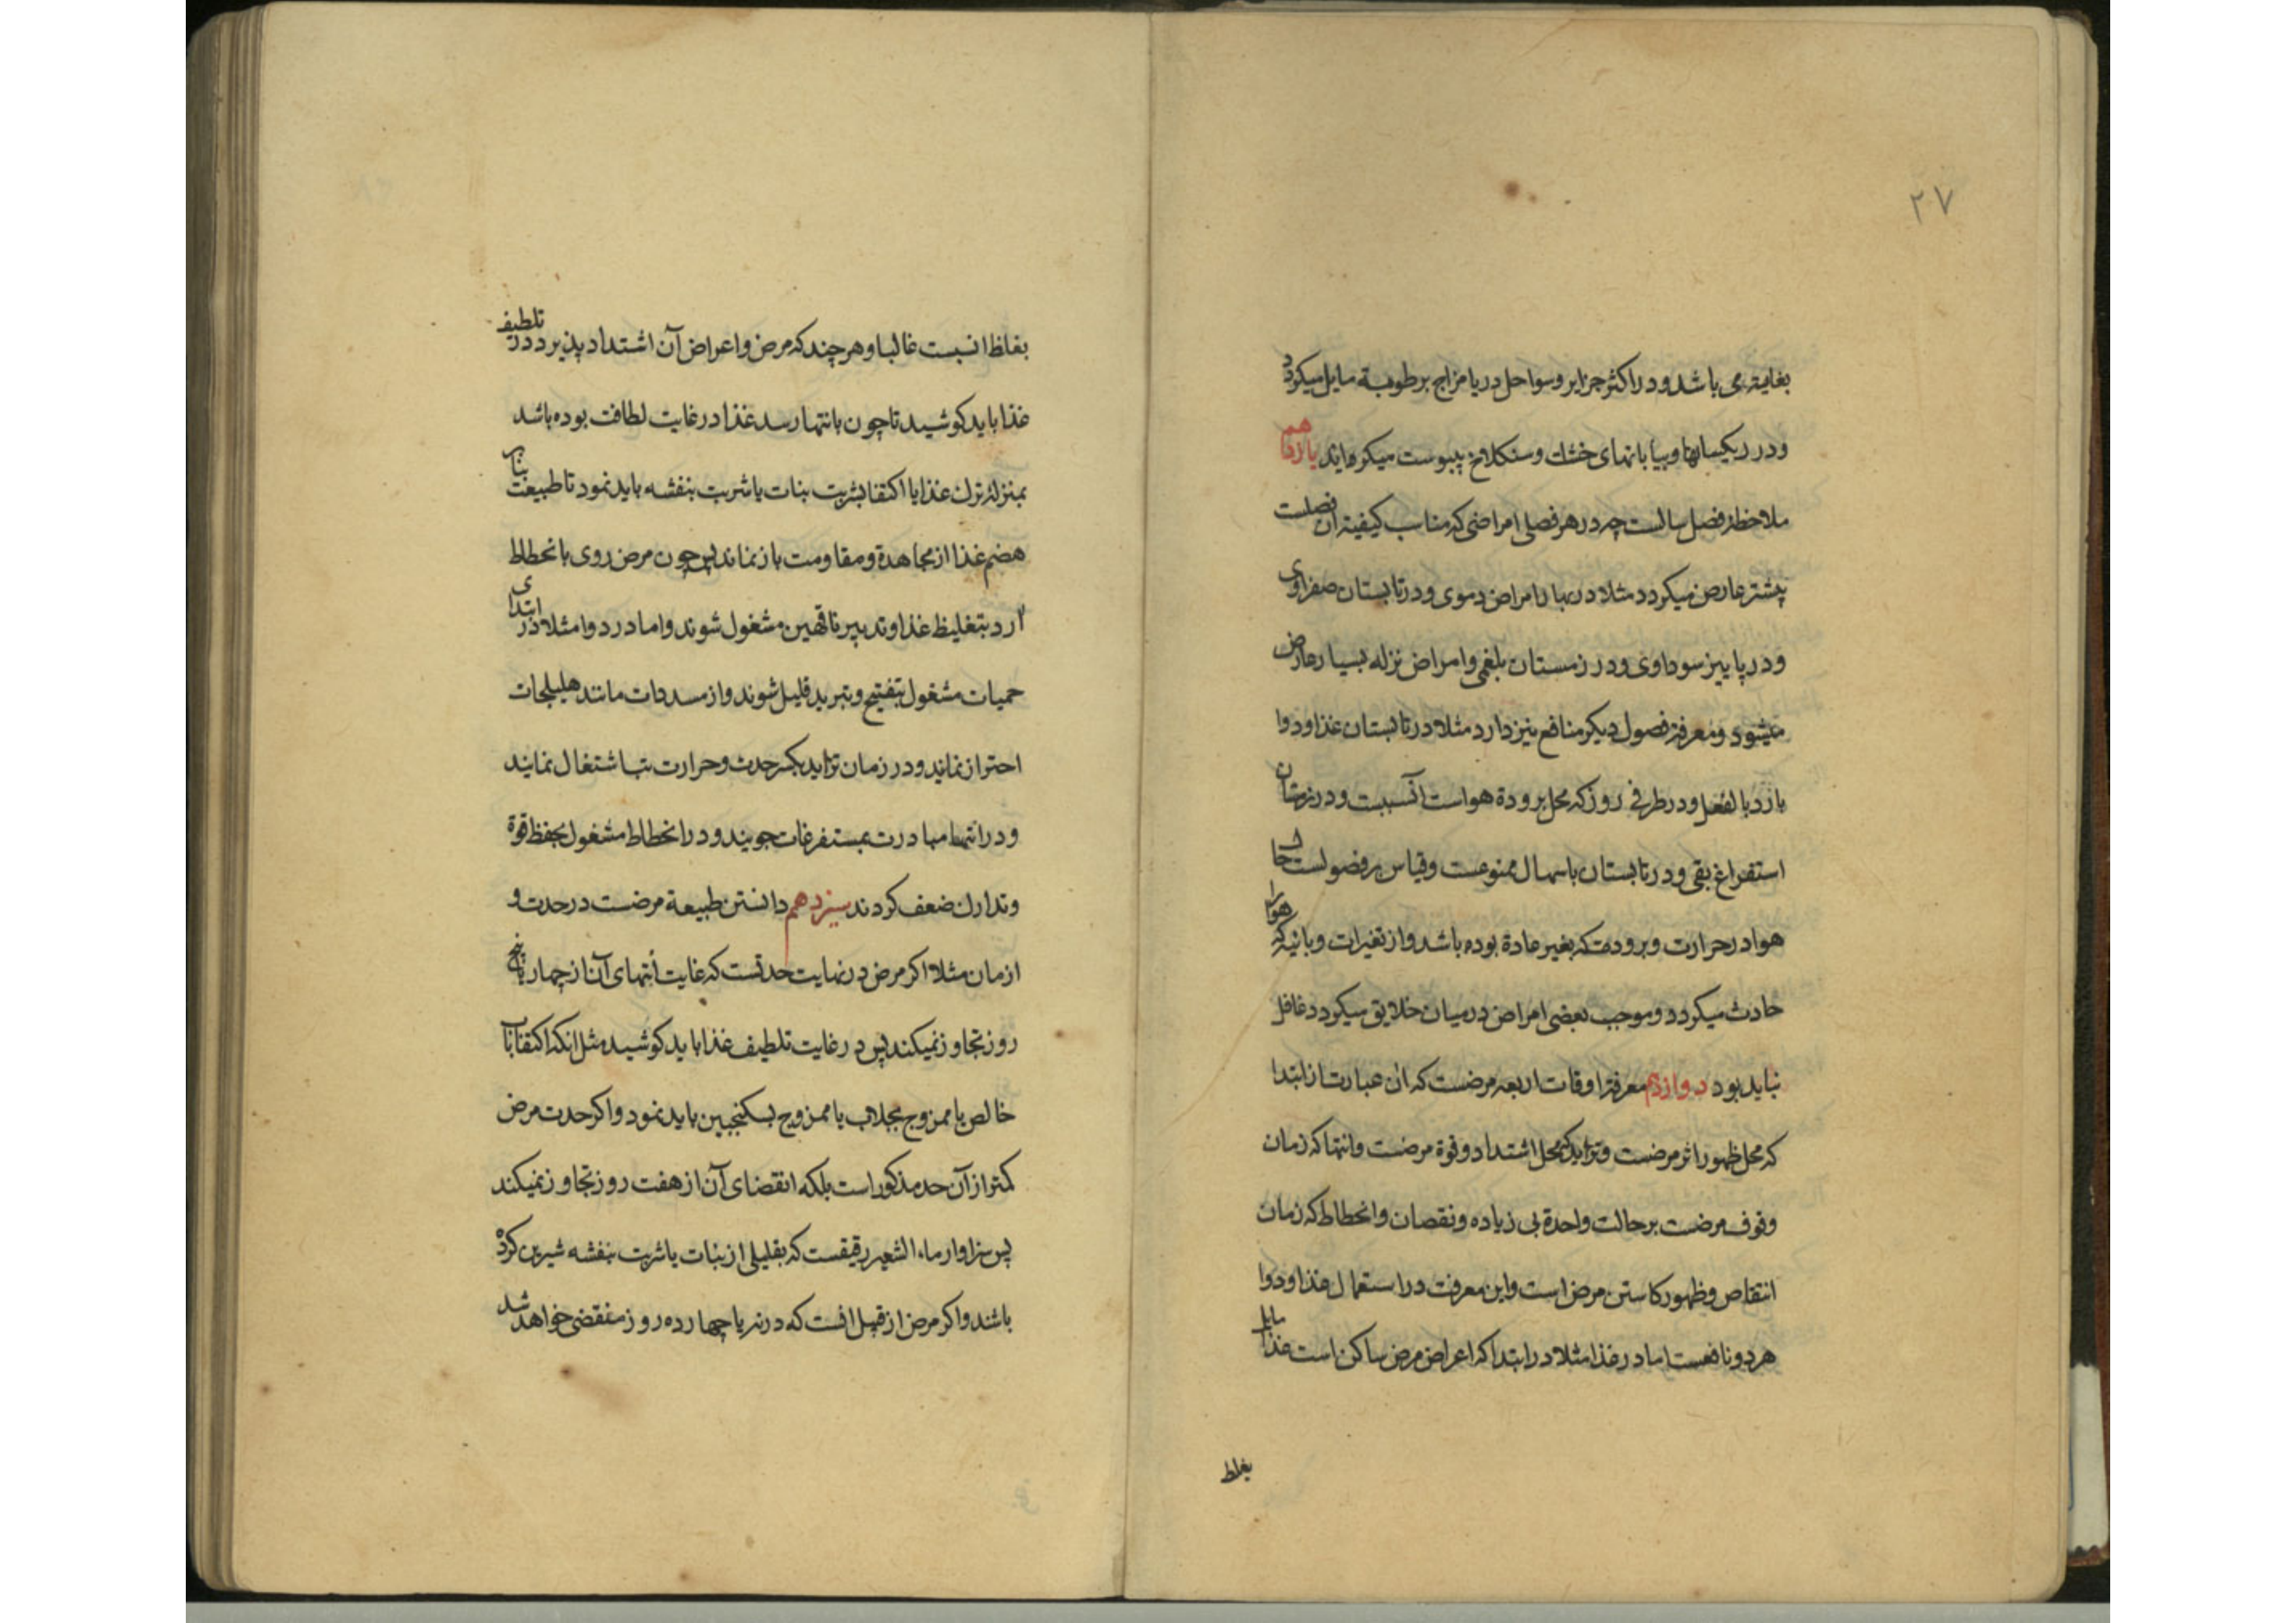 ۲۷
بغایته می باشد و در اکثر جزایر و سواحل دریا مزاج برطوبة مایل میکردد
و در ریکسانها و بیابانهای خشک و سنکلاخ یبوست میکرماید یازدهم
ملاحظهٔ فصل سالست چه در هر فصلی امراضی که مناسب کیفیته ان فصلست
بیشتر عارض میکردد مثلا در بهار امراض دموی و در تابستان صفراوی
و در پاییز سوداوی و در زمستان بلغمی و امراض نزله بسیار عارض
میشود و معرفة فصول دیکر منافع نیز دارد مثلا در تابستان غذا و دوا
بارد بالفعل و در طرفی روز که محل برودة هواست آنسبست و در زمستان
استفراغ بقی و در تابستان باسهال ممنوعست وقیاس بر فصولست حال
هوا در حرارت و برودت که بغیر عادة بوده باشد و از تغیرات وبائیه که هوا را
حادث میکردد و موجب بعضی امراض در میان خلایق میکردد غافل
نباید بود دوازدهم معرفة اوقات اربعه مرضست که ان عبارت از ابتدا
که محل ظهور اثر مرضست و تزاید که محل اشتداد و قوة مرضست و انتها که زمان
وقوف مرضست بر حالت واحدة بی زیاده و نقصان و انحطاط که زمان
انتقاص و ظهور کاستن مرض است و این معرفت در استعمال غذا و دوا
هر دو نافعست اما در غذا مثلا در ابتدا که اعراض مرض ساکن است غذا مایل
بغلظ
بغلظ انسبست غالبا و هر چند که مرض و اعراض آن اشتداد پذیرد در تلطیف
غذا باید کوشید تا چون بانتها رسد غذا در غایت لطافت بوده باشد
بمنزلهٔ ترک غذا یا اکتفا بشربت بنات یا شربت بنفشه باید نمود تا طبیعت
هضم غذا از مجاهدة و مقاومت باز نماند پس چون مرض روی بانحطاط
ارد بتغلیظ غذا و تدبیر ناقهین مشغول شوند و اما در دوا مثلا در ابتدای
حمیات مشغول بتفتیح و تبرید قلیل شوند و از مسددات مانند هلیلجات
احتراز نمایند و در زمان تزاید بکسر حدت و حرارت تب اشتغال نمایند
و در انتها مبادرت بمستفرغات جویند و در انحطاط مشغول بحفظ قوة
و تدارک ضعف کردند سیزدهم دانستن طبیعة مرضست در حدت و
ازمان مثلا اکر مرض در نهایت حدتست که غایت انتهای آن از چهار یا پنج
روز تجاوز نمیکند پس در غایت تلطیف غذا باید کوشید مثل انکه اکتفا باب
خالص یا ممزوج بجلاب یا ممزوج بسکنجبین باید نمود و اکر حدت مرض
کمتر از آن حد مذکور است بلکه انقضای آن از هفت روز تجاوز نمیکند
پس سزاوار ماء الشعیر رقیقست که بقلیلی از بنات یا شربت بنفشه شیرین کرده
باشند و اکر مرض از قبیل افست که در نه یا چهارده روز منقضی خواهد شد